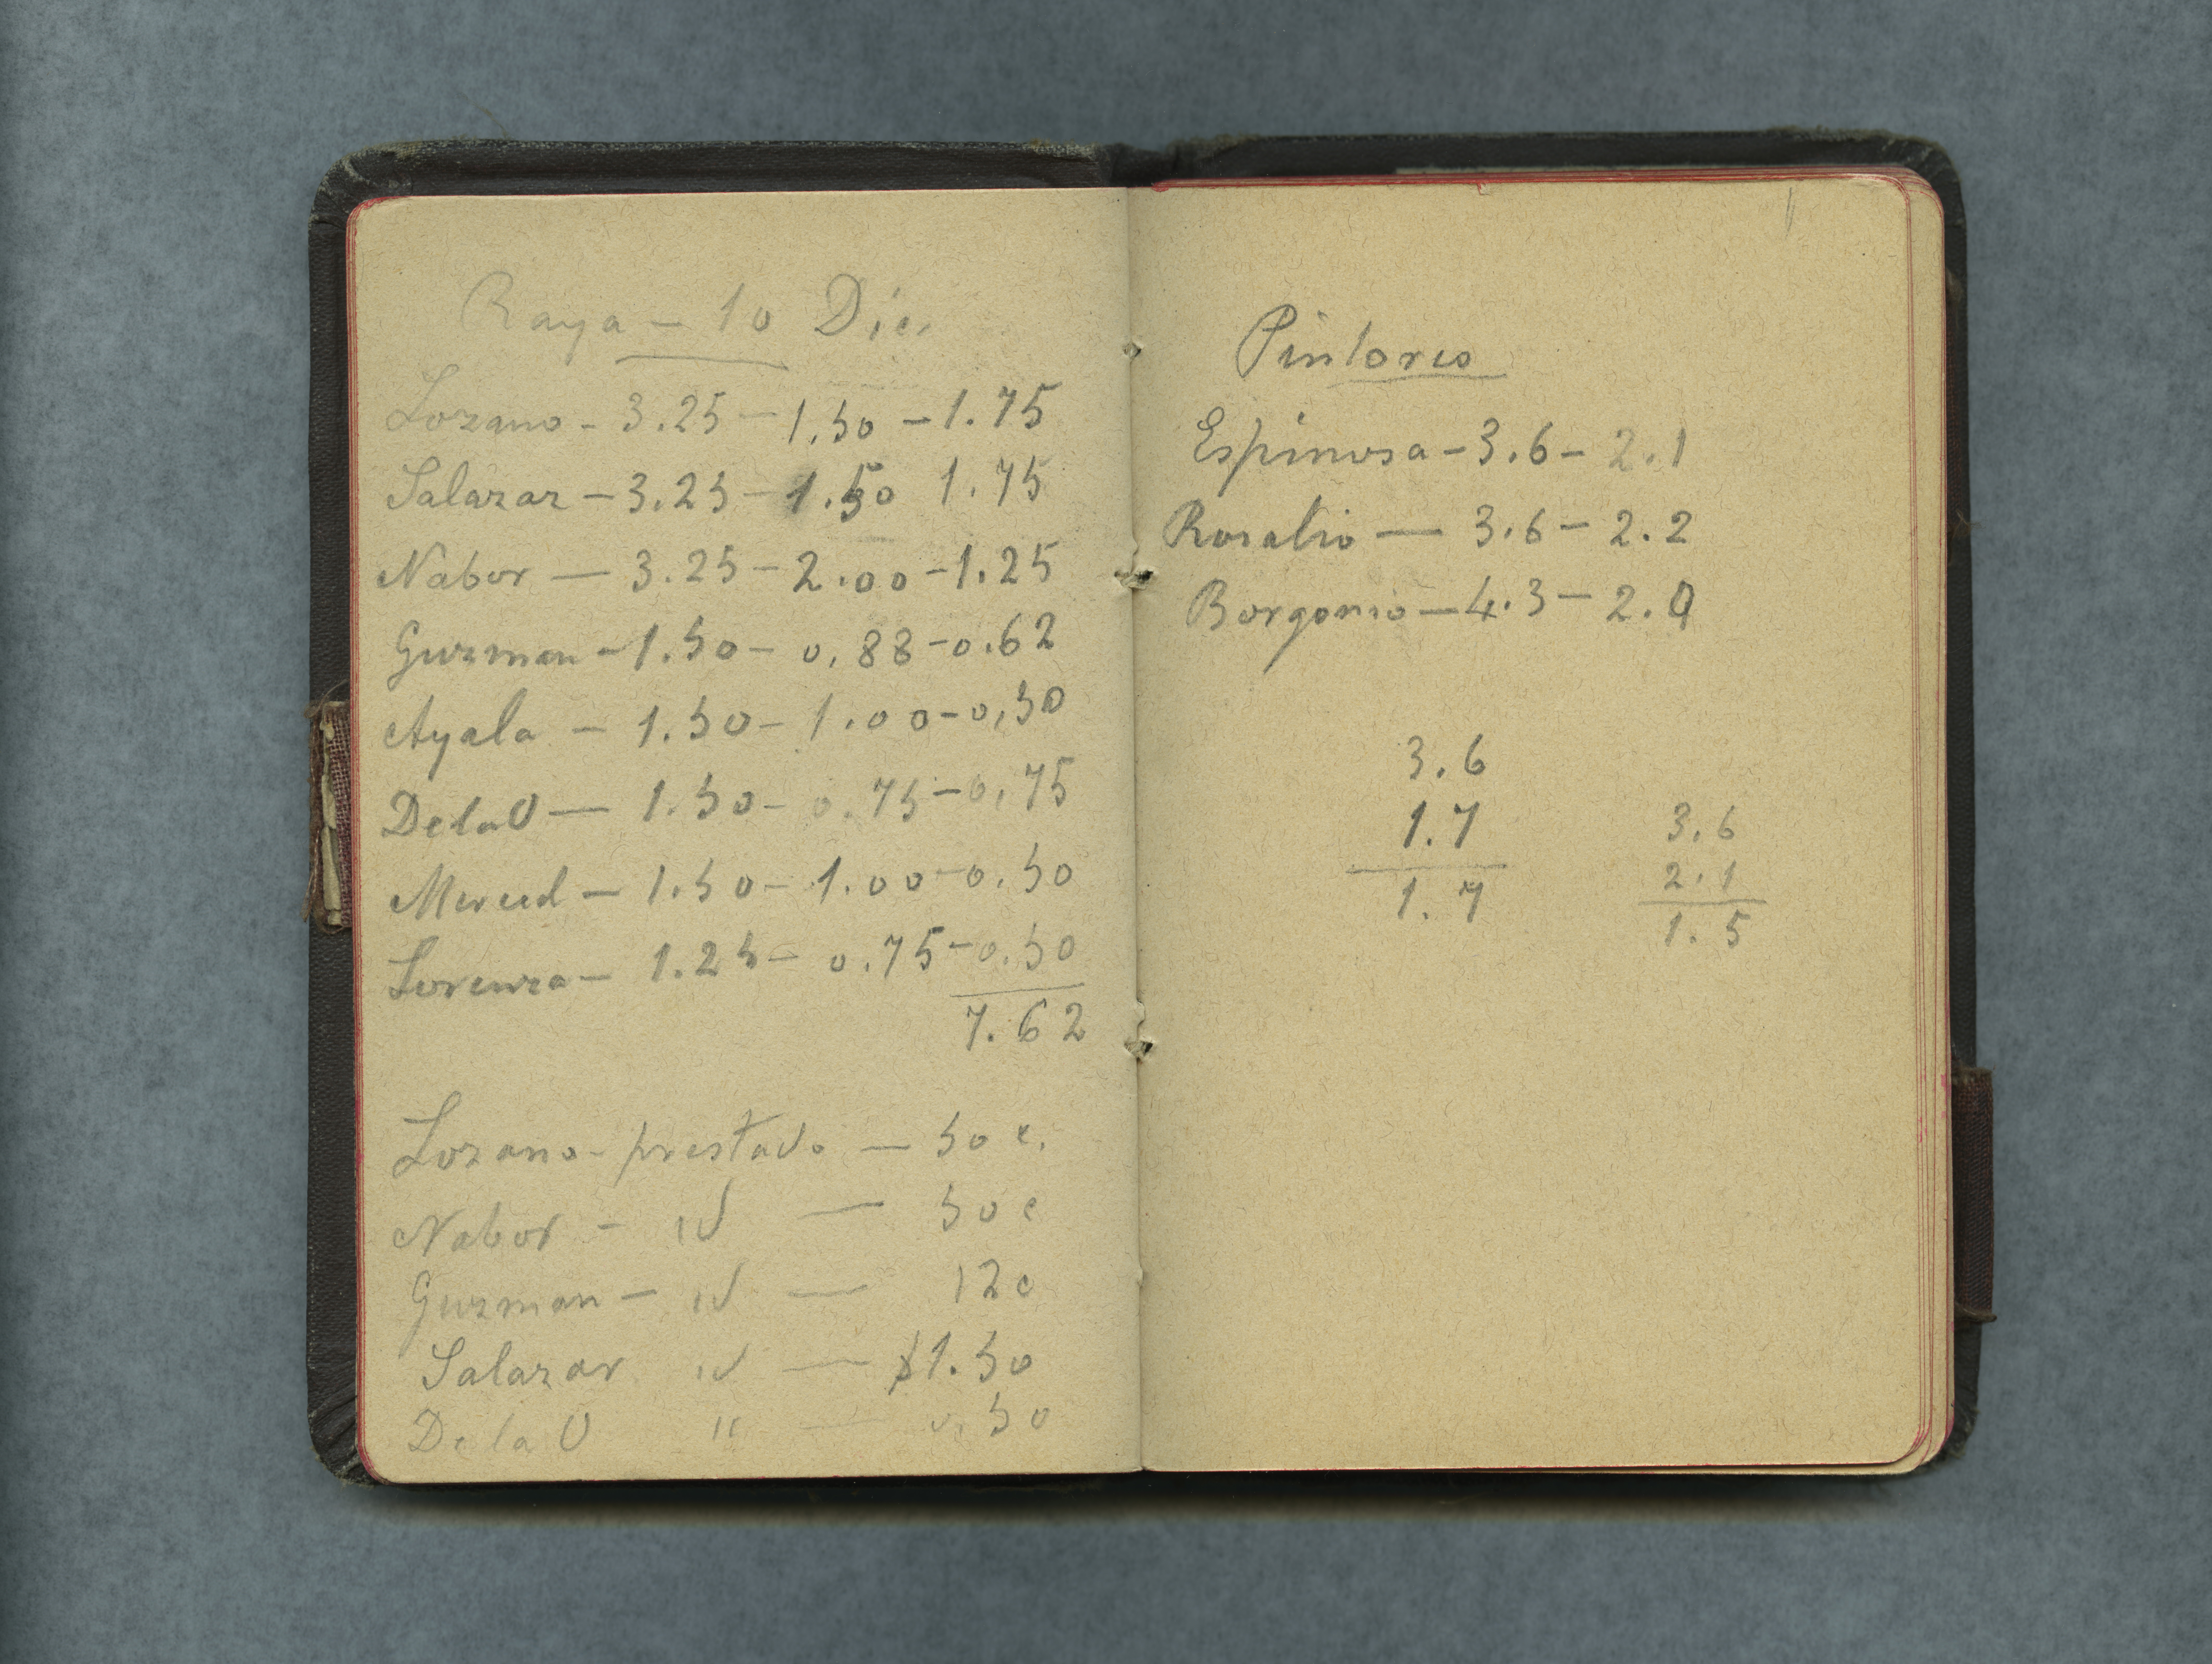 Raya - 10 Dic.
Lozano - 3.25 - 1.50 - 1.75
Salazar - 3.25 - 1.50 1.75
Nabor - 3.25 - 2.00 - 1.25
Guzman - 1.50 - 0.88 - 0.62
Ayala - 1.50 - 1.00 - 0,50
De la O - 1.50 - 0.75 - 0,75
Merced - 1.50 - 1.00 - 0.50
Lorenza - 1.25 - 0.75 - 0.50
7.62
Lozano - prestado - 50 c.
Nabor - id - 50 c
Guzman - id - 12 c
Salazar id - $1.50
De la O " - 0.50
Pintores
Espinosa - 3.6 - 2.1
Rosalio - 3.6 - 2.2
Borgonio - 4.3 - 2.0
3.6
1.7
1.7
3.6
2.1
1.5